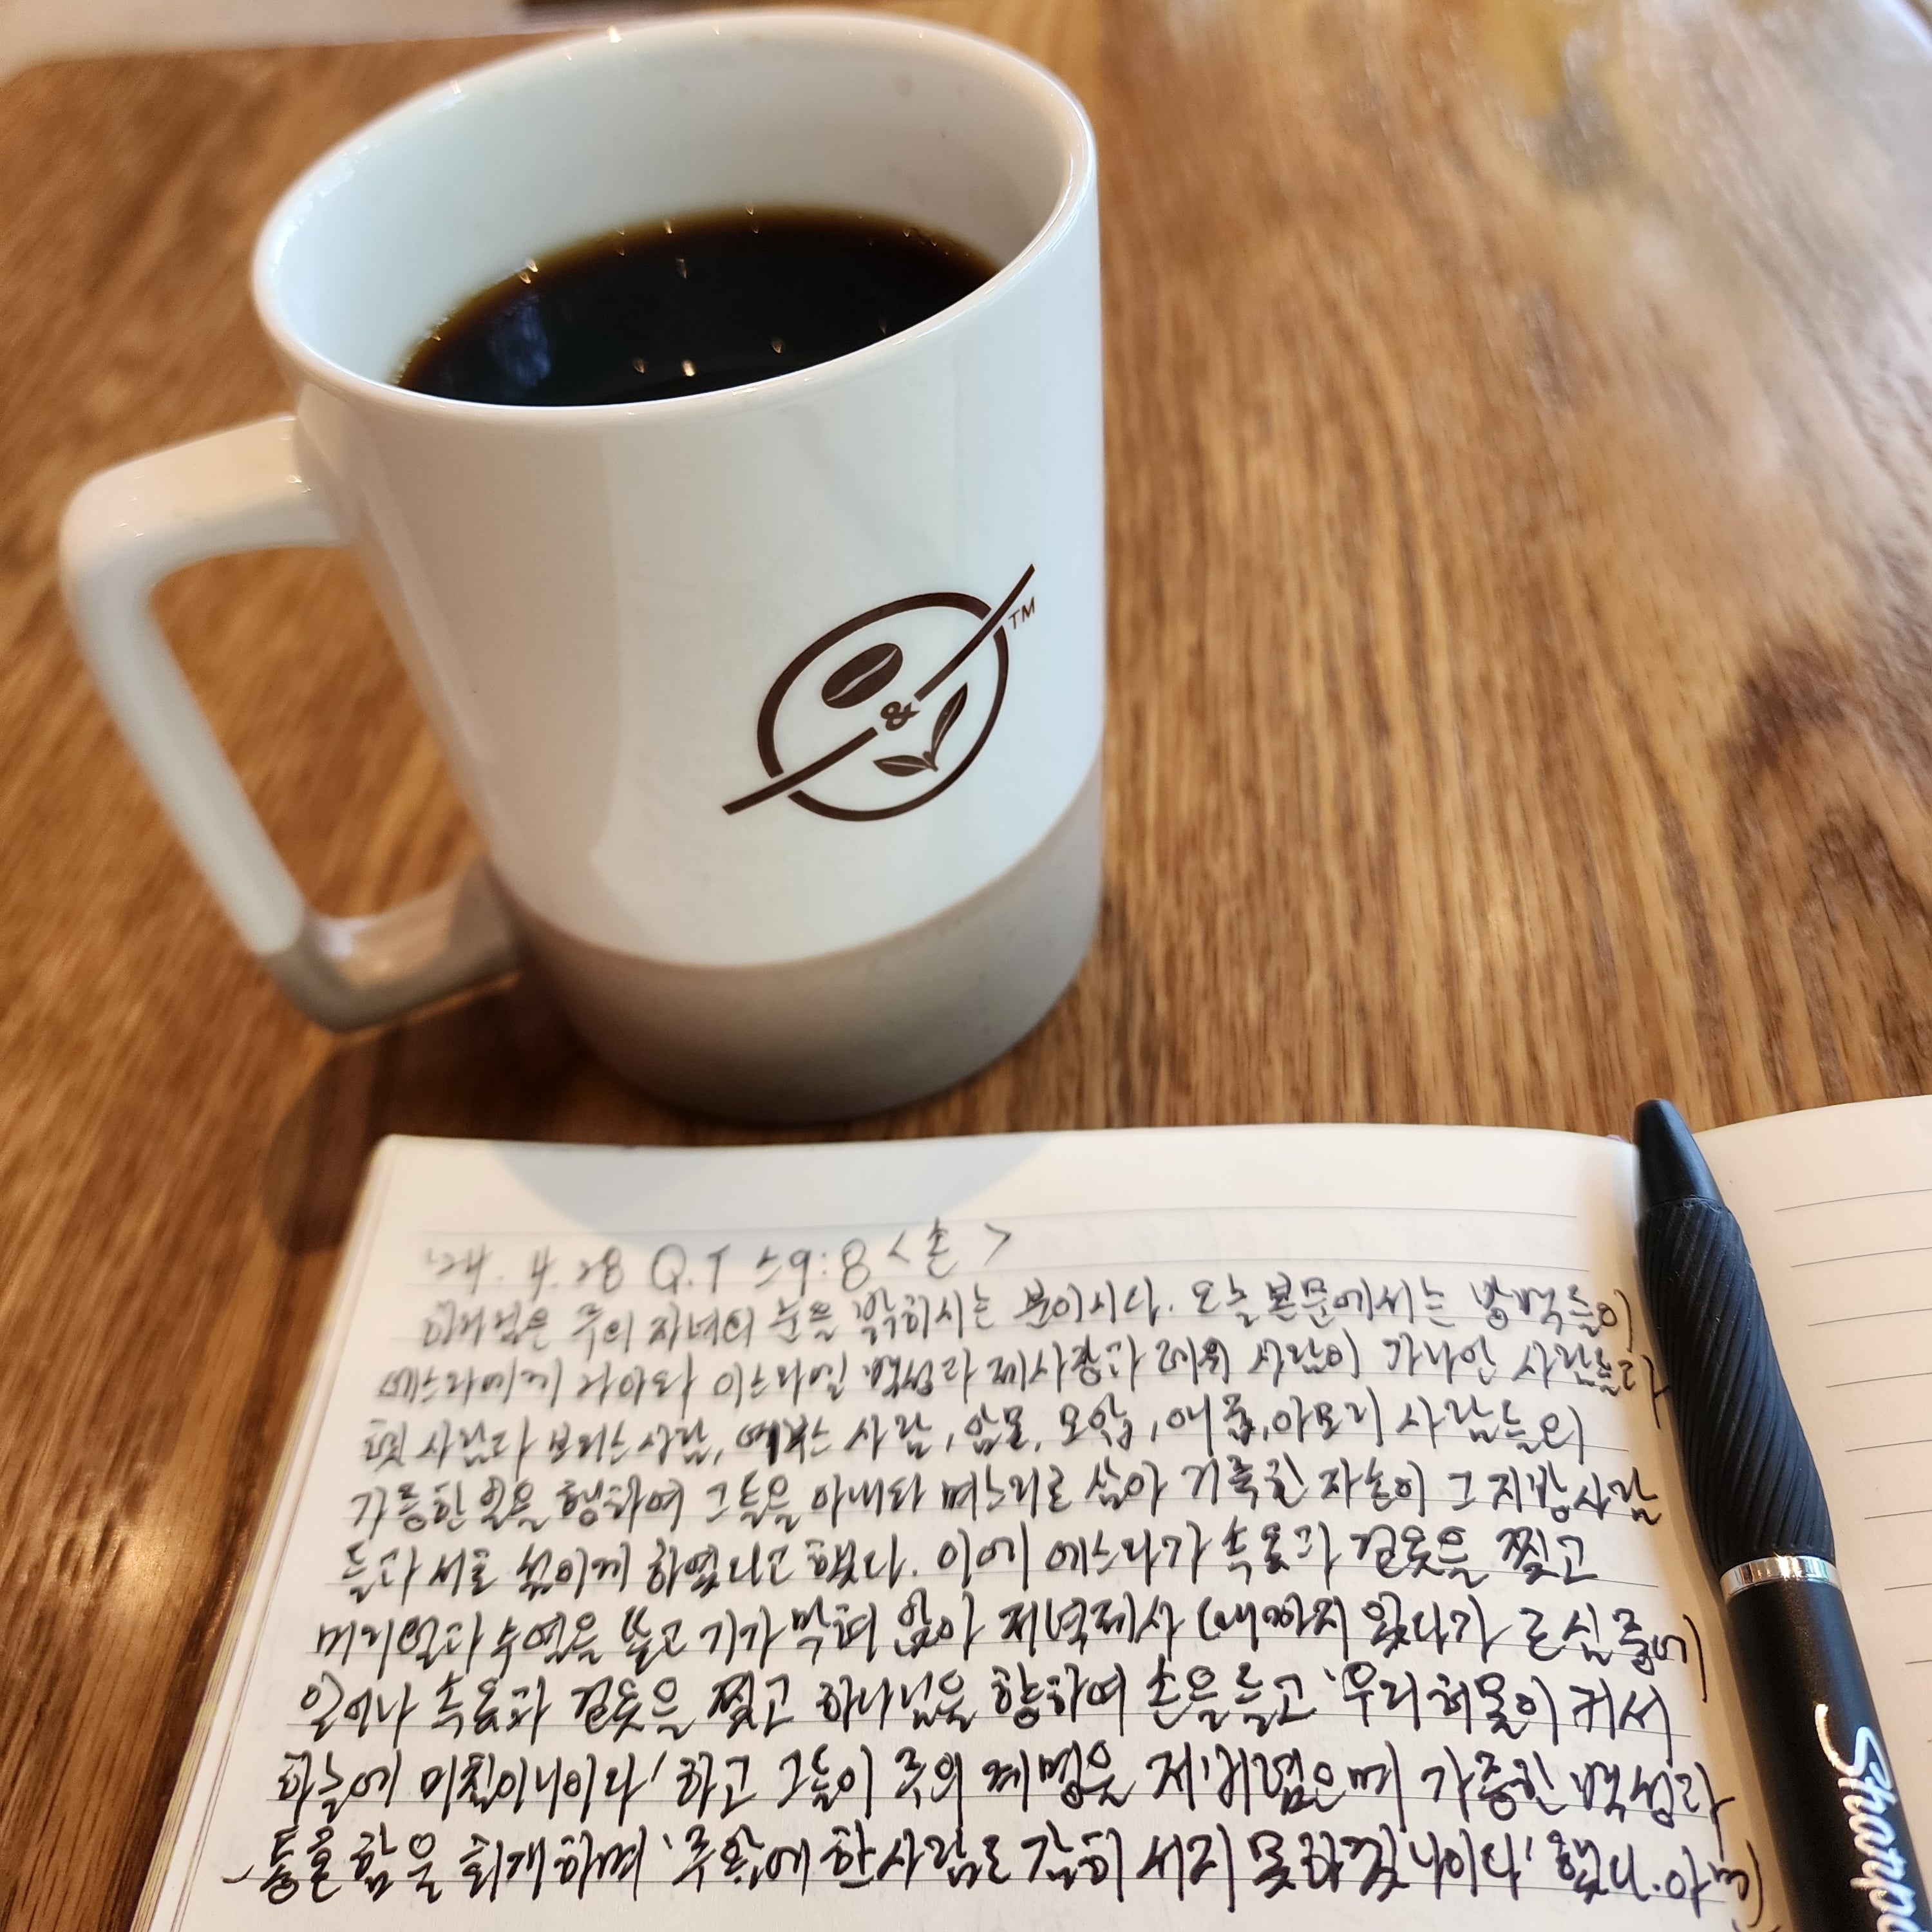 &
TM
'24. 4. 28 Q.T 스9:8 <손>
하나님은 주의 자녀의 눈을 밝히시는 분이시다. 오늘 본문에서는 방백들이
에스라에게 나아와 이스라엘 백성과 제사장과 레위 사람이 가나안 사람들과
헷 사람과 브리스 사람, 여부스 사람, 암몬, 모압, 애굽, 아모리 사람들의
가증한 일을 행하여 그들을 아내와 며느리로 삼아 거룩한 자손이 그 지방 사람
들과 서로 섞이게 하였다고 했다. 이에 에스라가 속옷과 겉옷을 찢고
머리털과 수염을 뜯고 기가 막혀 앉아 저녁제사 때까지 있다가 근심 중에
일어나 속옷과 겉옷을 찢고 하나님을 향하여 손을 들고 '우리 허물이 커서
하늘에 미침이니이다' 하고 그들이 주의 계명을 저버렸으며 가증한 백성과
통혼함을 회개하며 '주 앞에 한 사람도 감히 서지 못하겠나이다' 했다.
Sharpie